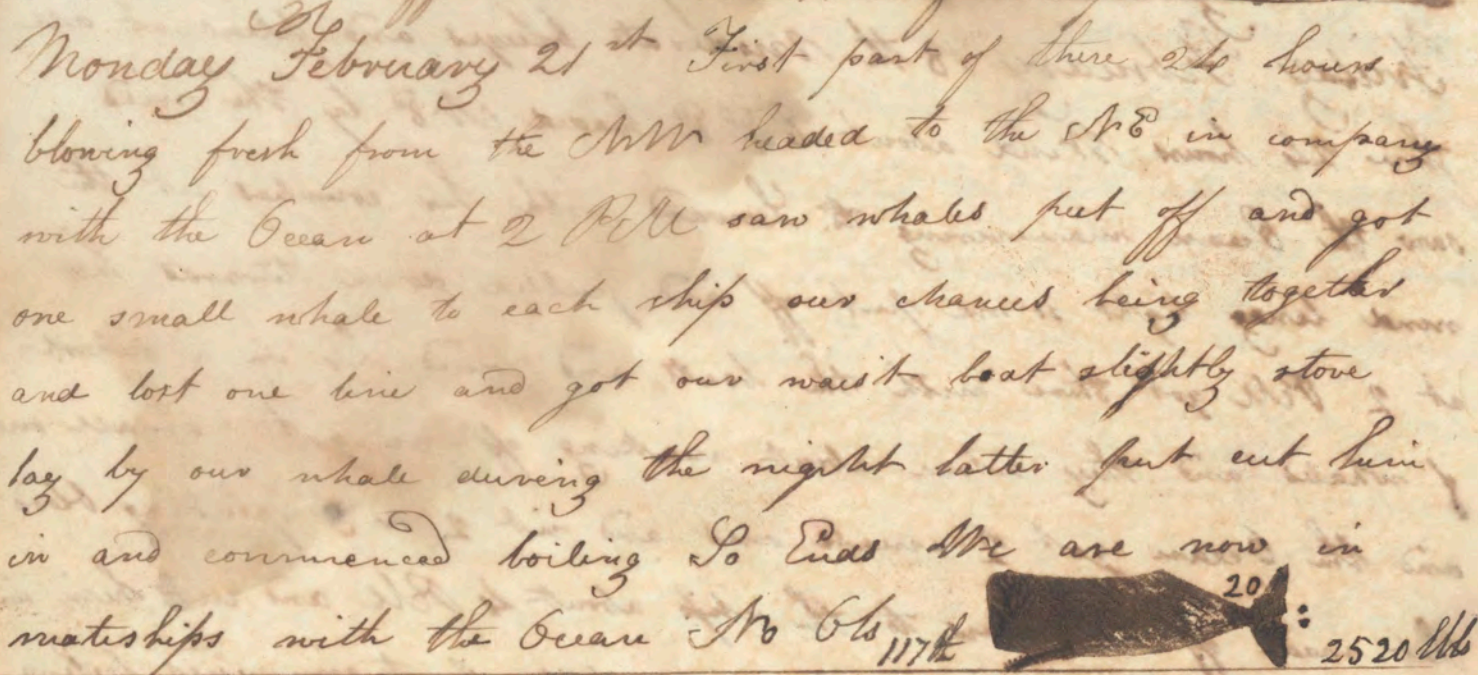 Monday February 21st First part of these 24 hours
blowing fresh from the NW headed to the NE in company
with the Ocean at 2 PM saw whales put off and got
one small whale to each ship our chances being together
and lost one line and got our waist boat slightly stove
lay by our whale during the night latter part cut him
in and commenced boiling So Ends We are now in
mateships with the Ocean No Obs 117th 20 2520 bbls